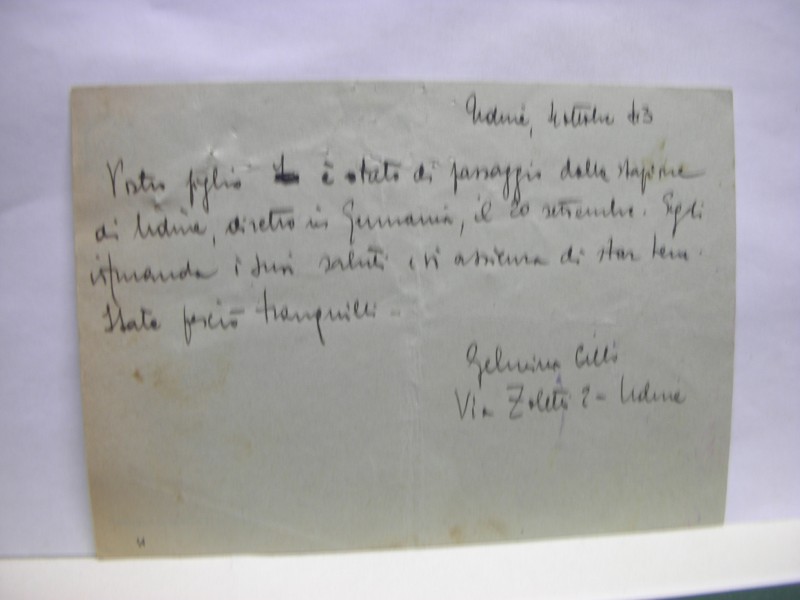 Udine, 4 ottobre 43
Vostro figlio è stato di passaggio dalla stazione
di Udine, diretto in Germania, il 20 settembre. Egli
vi manda i suoi saluti e vi assicura di star bene.
State perciò tranquilli -
Gelmina
Via 2 - Udine